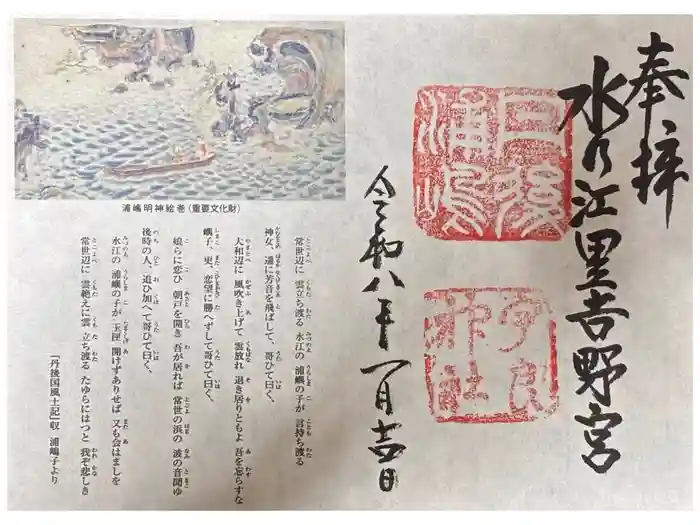 奉拝
水乃江里吉野宮
丹後
浦嶋
宇良
神社
令和八年一月吉日
浦嶋明神絵巻(重要文化財)
常世辺に 雲立ち渡る 水江の 浦嶼の子が 言持ち渡る
神女、遥に芳音を飛ばして、哥ひて曰く、
大和辺に 風吹き上げて 雲放れ 退き居りともよ 吾を忘らすな
嶼子、更、恋望に勝へずして哥ひて曰く、
娘らに恋ひ 朝戸を開き 吾が居れば 常世の浜の 波の音聞ゆ
後時の人、追ひ加へて哥ひて曰く、
水江の 浦嶼の子が 玉匣 開けずありせば 又も会はましを
常世辺に 雲絶えに雲 立ち渡る たゆらにはつと 我ぞ悲しき
「丹後国風土記」収 浦嶋子より